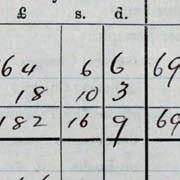 £ s. d.
64 6 6 69
18 10 3
182 16 9 69